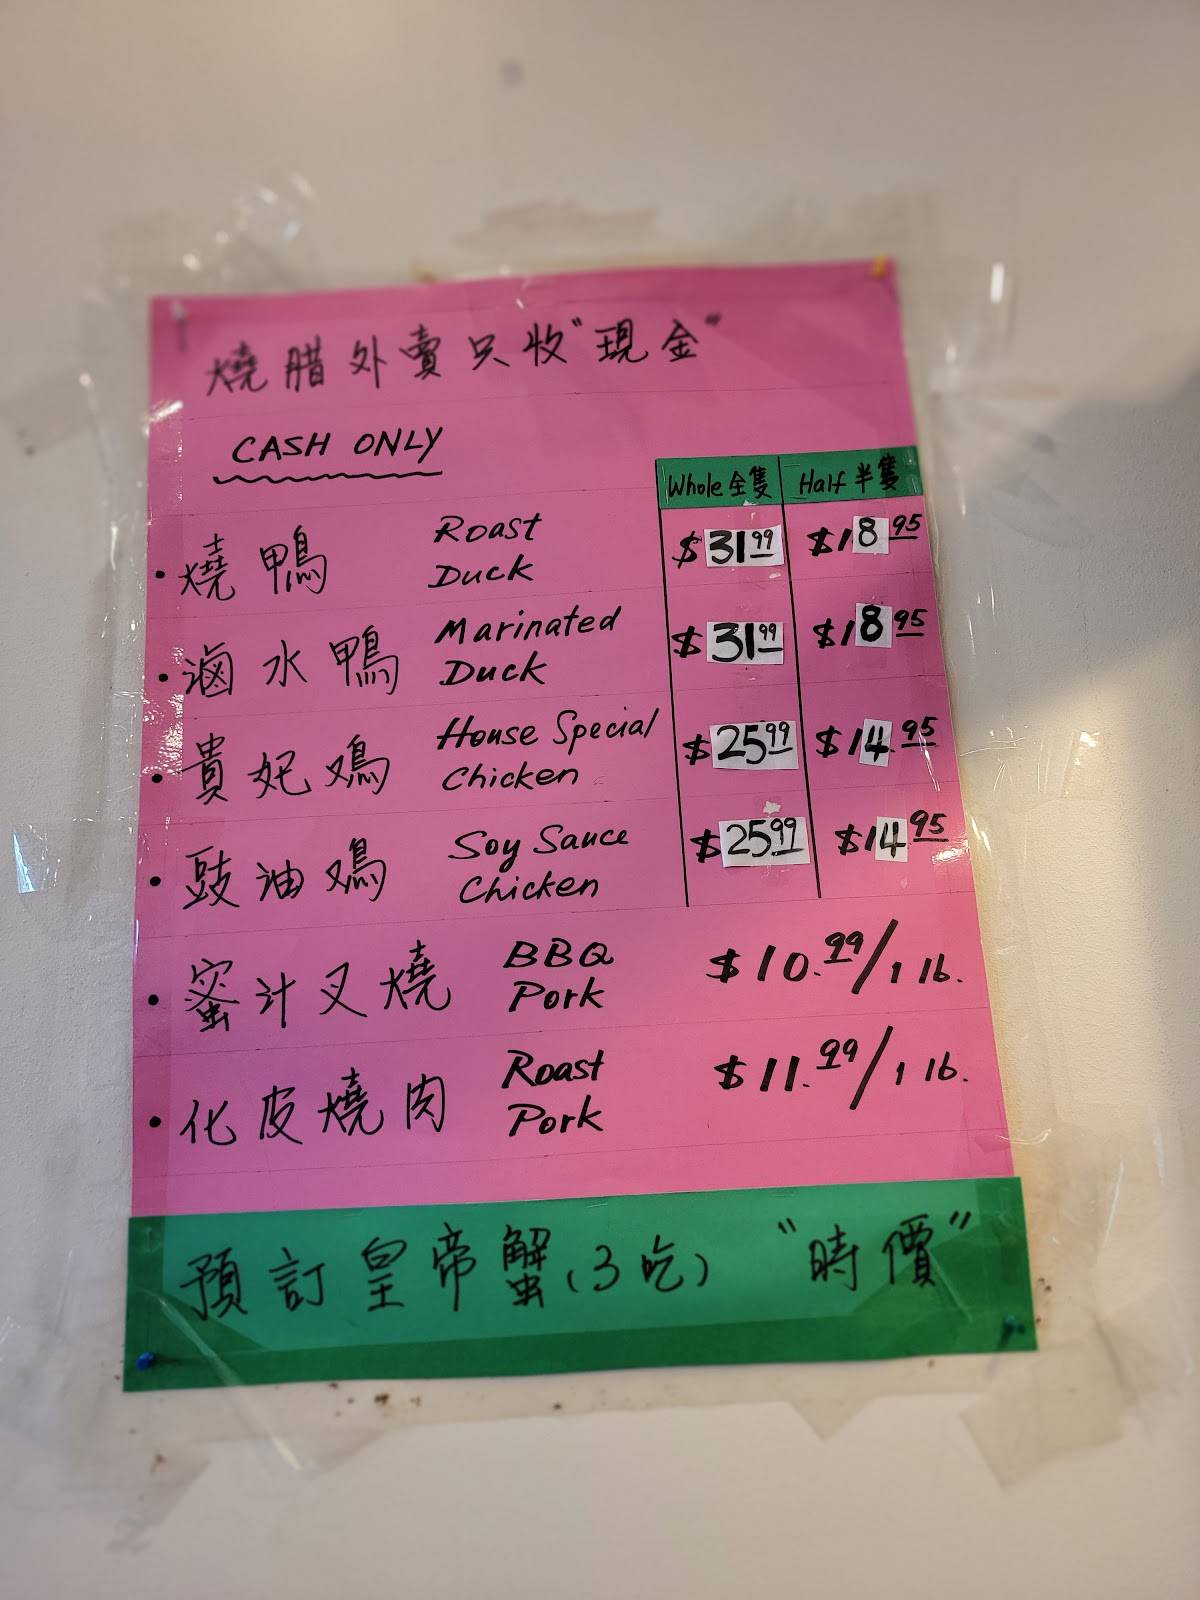 燒腊外賣只收"現金"
CASH ONLY
Whole 全隻 Half 半隻
• 燒鴨 Roast Duck $31.99 $18.95
• 滷水鴨 Marinated Duck $31.99 $18.95
• 貴妃鴻 House Special Chicken $25.99 $14.95
• 豉油鳮 Soy Sauce Chicken $25.99 $14.95
• 蜜汁叉燒 BBQ Pork $10.99/1 lb.
• 化皮燒肉 Roast Pork $11.99/1 lb.
預訂皇帝蟹(3吃) "時價"